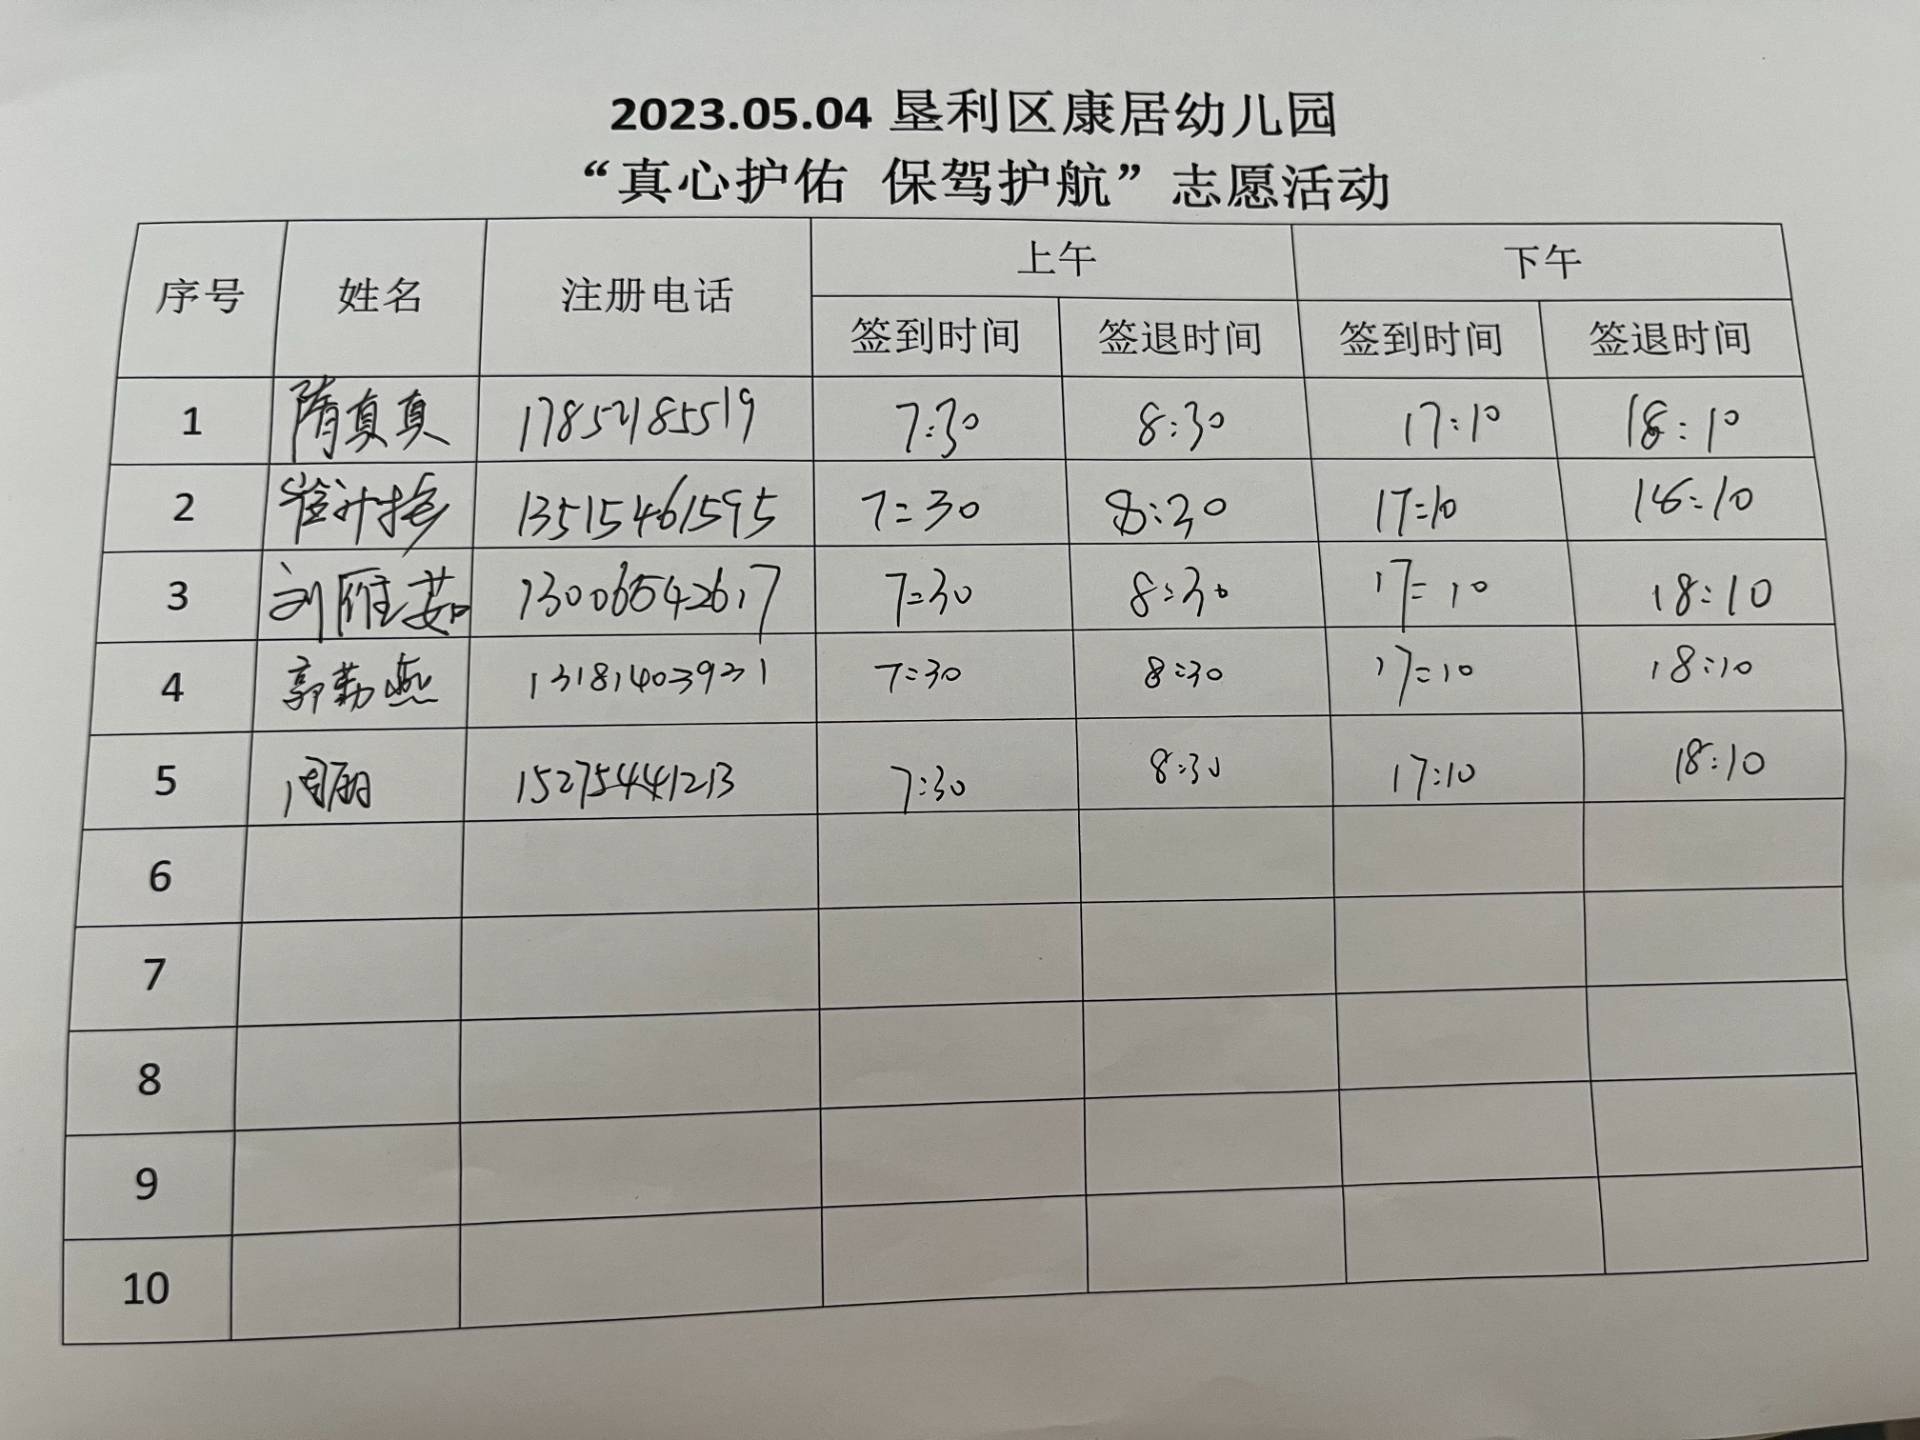 2023.05.04 垦利区康居幼儿园
“真心护佑 保驾护航”志愿活动
序号 姓名 注册电话 上午 下午
签到时间 签退时间 签到时间 签退时间
1 隋真真 17852185519 7:30 8:30 17:10 18:10
2 13515461595 7:30 8:30 17:10 18:10
3 刘雁茹 13006542617 7:30 8:30 17:10 18:10
4 郭勤燕 13181403931 7:30 8:30 17:10 18:10
5 周丽 15275441213 7:30 8:30 17:10 18:10
6
7
8
9
10